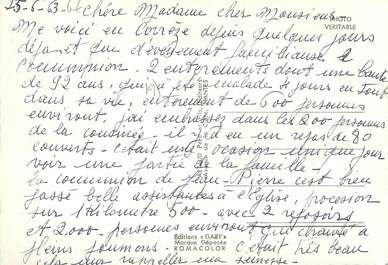 25-6-63- Chère Madame cher Monsieur
Me voici en Corrèze depuis quelques jours
déja et que d'evenement familiause
communion. 2 enterements dont une tante
de 92 ans, qui a été malade 4 jours en tout
dans sa vie, enterement de 600 personnes
environt, j'ai embrassez dans les 200 personnes
de la cousinée. il y a eu un repas de 80
couverts - c'était une ocasion unique jour
voir une partie de la famille -
la communion de Jean-Pierre c'est bien
passé belle assistantes à l'Eglise, procession
sur 1 kilomètre 500 - avec 2 reposoirs
et 2.000 - personnes environt qui chante à
pleins poumons. c'était très beau
cela me rappeller ma jeunesse -
PHOTO
VERITABLE
Editions "GABY"
Marque Déposée
ROMACOLOR